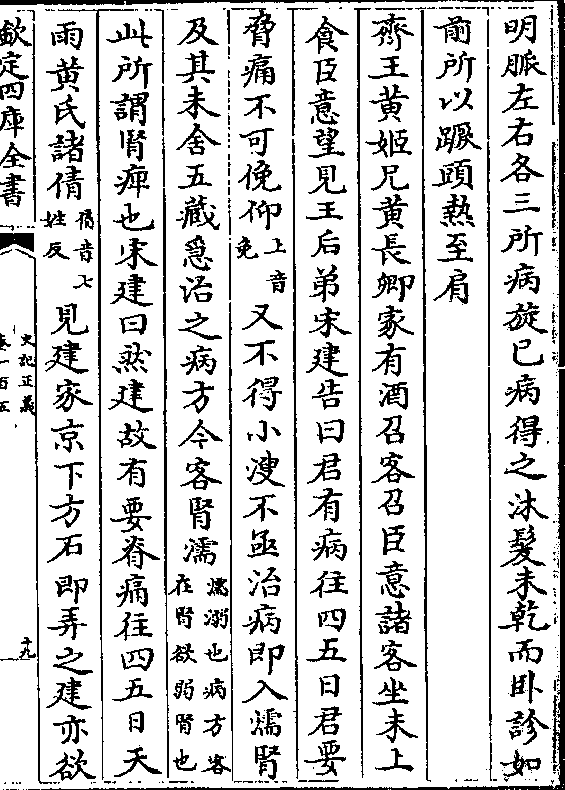 明脈左右各三所病旋已病得之沐髮未乾而卧診如
前所以蹶頭熱至肩
齊王黄姬兄黄長卿家有酒召客召臣意諸客坐未上
食臣意望見王后弟宋建告曰君有病往四五日君要
脅痛不可俛仰上音免又不得小溲不亟治病即入濡腎
及其未舍五藏急治之病方今客腎濡濡溺也病方客在腎欲弱腎也
此所謂腎痺也宋建曰然建故有要脊痛往四五日天
雨黄氏諸倩倩音七姓反見建家京下方石即弄之建亦欲
欽定四庫全書
史記正義
卷一百五
十九